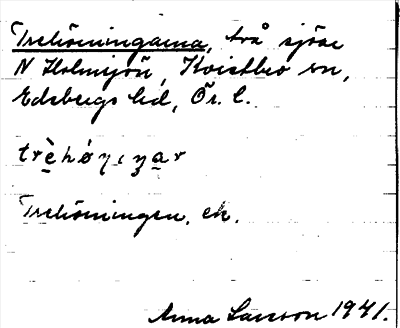 Trehörningarna, två sjöar
N Holmsjön, Kvistbro sn,
Edsbergs hd, Ör. l.
trèhø̀ɳıŋar
Trehörningen, ek.
Anna Larsson 1941.